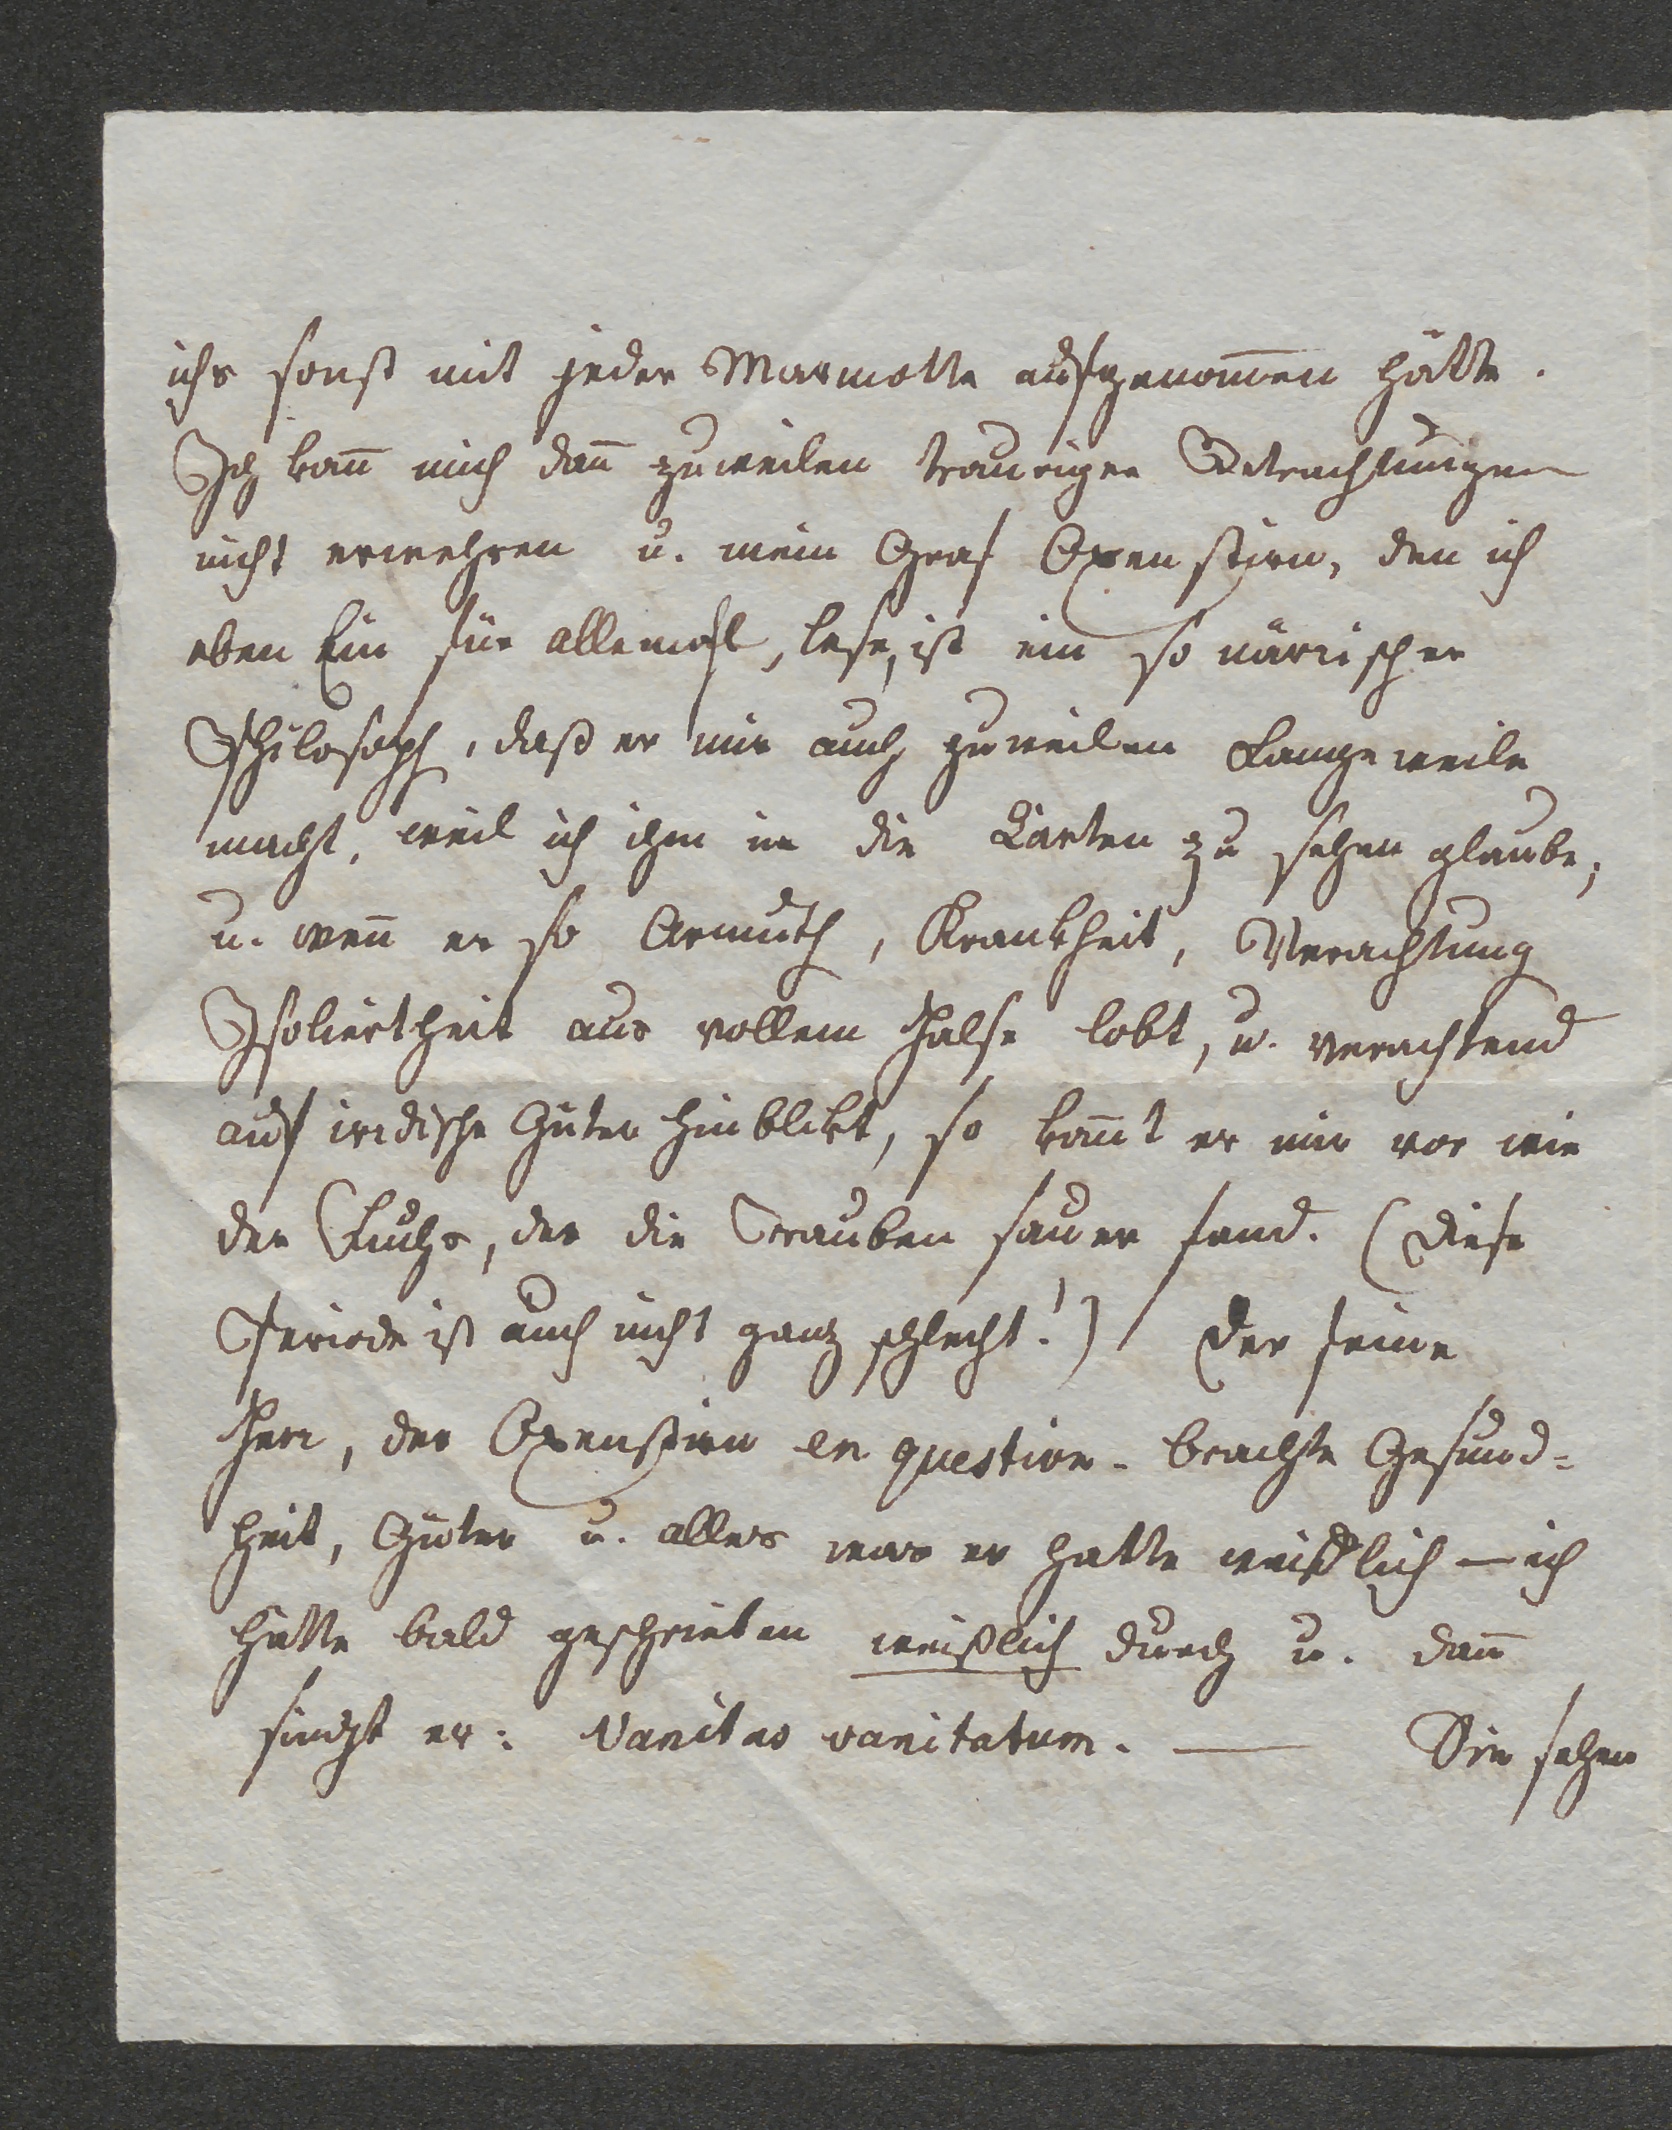 ichs sonst mit jeder Marmotte aufgenom̄en hätte.
Ich kan̄ mich dan̄ zuweilen trauriger Betrachtungen
nicht erwehren u. mein Graf Oxenstirn, den ich
eben Ein für allemahl, lese, ist ein so närrischer
Philosoph, daß er mir auch zuweilen Langeweile
macht, weil ich ihm in die Karten zu sehen glaube;
u. wen̄ er so Armuth, Krankheit, Verachtung
Isoliertheit aus vollem Halse lobt, u. verachtend
auf irdische Güter hinblikt, so kom̄t er mir vor wie
der Fuchs, der die Trauben sauer fand. (Diese
Periode ist auch nicht ganz schlecht!) Der feine
Herr, der Oxenstirn en question brachte Gesund=
heit, Güter u. alles was er hatte weidlich — ich
hätte bald geschrieben weißlich durch u. dan̄
singt er: Vanitas vanitatum. — Sie sehen